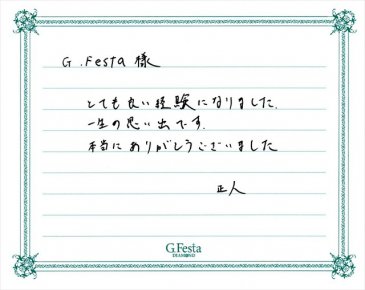 G.Festa 様
とても良い経験になりました.
一生の思い出です.
本当にありがとうございました
正人
G.Festa
DIAMOND